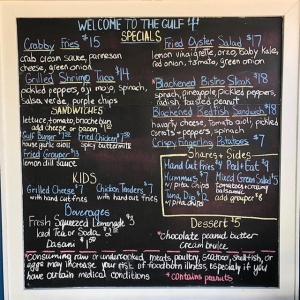 WELCOME TO THE GULF
SPECIALS
Crabby Fries $15
crab claw sauce, parmesan
cheese, green onion
Grilled Shrimp Taco $14
pickled peppers, aji mojo, spinach,
salsa verde, purple chips
SANDWICHES
lettuce, tomato, brioche bun
add cheese or bacon
Gulf Burger
house garlic aioli
Fried Chicken
spicy buttermilk
Fried Grouper
lemon dill sauce
KIDS
Grilled Cheese $7
with hand cut fries
Chicken Tenders $7
with hand cut fries
Beverages
Fresh Squeezed Lemonade $3
Iced Tea or Soda $2
Dasani
Fried Oyster Salad $17
lemon vinaigrette, orzo, baby kale,
red onion, tomato, green onion
*Blackened Bistro Steak $18
spinach, pineapple pickled peppers,
radish, toasted peanut
Blackened Redfish Sandwich $18
havarti cheese, tomato aioli, pickled
carrots + peppers, spinach
Crispy Fingerling Potatoes $7
Shares + Sides
Hand Cut Fries $4
Peel + Eat $9
Hummus $7
w/ pita chips
Tuna Dip
w/ pita chips
Mixed Green Salad $5
tomatoes, carrot
add grouper $8
Dessert $5
*chocolate peanut butter
creme brulee
*consuming raw or undercooked meats, poultry, seafood, shellfish, or
eggs may increase your risk of foodborn illness, especially if you
have certain medical conditions
*contains peanuts